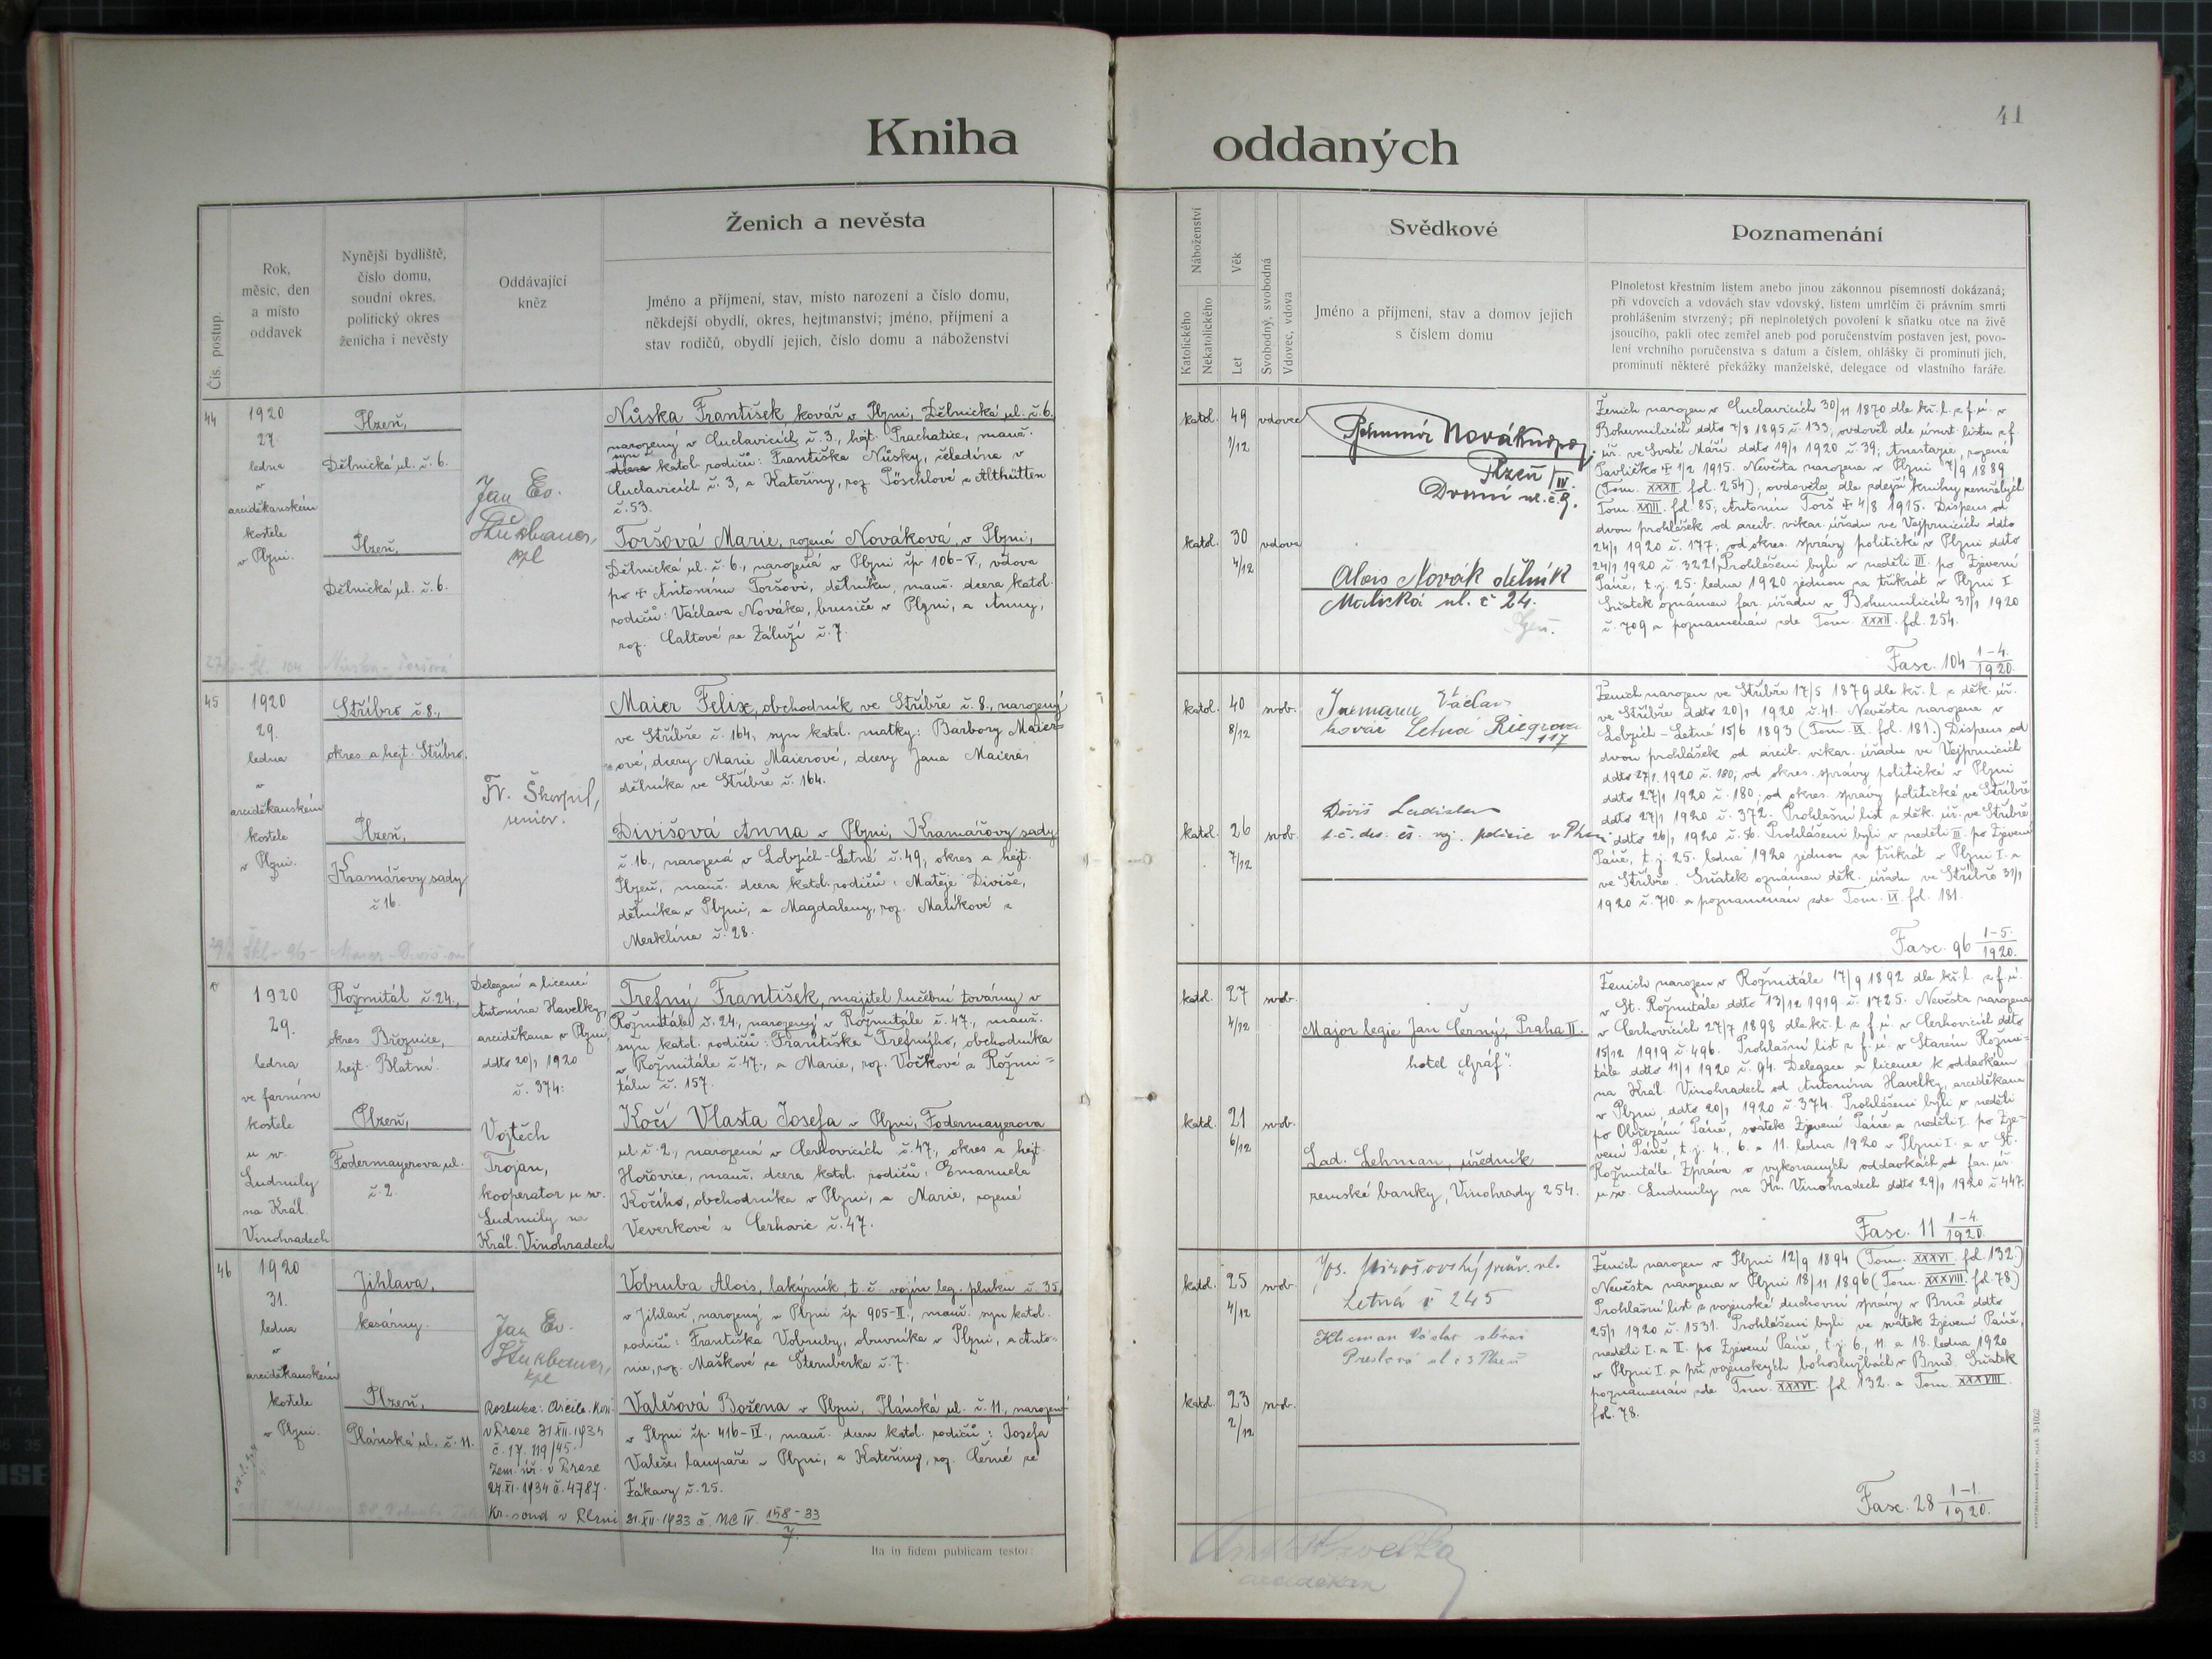 41
Kniha oddaných
Čís. postup.
Rok,
měsíc, den
a místo
oddavek
Nynější bydliště,
číslo domu,
soudní okres,
politický okres
ženicha i nevěsty
Oddávající
kněz
Ženich a nevěsta
Jméno a příjmení, stav, místo narození a číslo domu,
někdejší obydlí, okres, hejtmanství; jméno, příjmení a
stav rodičů, obydlí jejich, číslo domu a náboženství
Náboženství
Katolického
Nekatolického
Věk
Let
Svobodný, svobodná
Vdovec, vdova
Svědkové
Jméno a příjmení, stav a domov jejich
s číslem domu
Poznamenání
Plnoletost křestním listem anebo jinou zákonnou písemností dokázaná;
při vdovcích a vdovách stav vdovský, listem umrlčím či právním smrti
prohlášením stvrzený; při neplnoletých povolení k sňatku otce na živě
jsoucího, pakli otec zemřel aneb pod poručenstvím postaven jest, povo-
lení vrchního poručenstva s datum a číslem, ohlášky či prominutí jich,
prominutí některé překážky manželské, delegace od vlastního faráře.
44
1920
27.
ledna
v
arciděkanském
kostele
v Plzni.
Plzeň,
Dělnická ul. č. 6.
Plzeň,
Dělnická ul. č. 6.
Jan Ev.
kpl
Nůska František, kovář v Plzni, Dělnická ul. č. 6.
narozený v Čuclavicích č. 3., hejt. Prachatice, manž.
syn
dcera katol. rodičů: Františka Nůsky, čeledína v
Čuclavicích č. 3, a Kateřiny, roz. Pöschlové z Althütten
č. 53.
Toršová Marie, rozená Nováková, v Plzni,
Dělnická ul. č. 6., narozená v Plzni čp. 106-V., vdova
po ✝ Antonínu Toršovi, dělníku, manž. dcera katol.
rodičů: Václava Nováka, brusiče v Plzni, a Anny,
roz. Caltové ze Záluží č. 7.
katol. 49 vdovec
1/12
katol. 30 vdova
4/12
Plzeň IV
Alois Novák dělník
Malická ul. č 24.
Ženich narozen v Čuclavicích 30/11 1870 dle kř. l. z f. ú. v
Bohumilicích ddto 7/8 1895 č. 133, ovdověl dle úmrt. listu z f.
úř. ve Svaté Máří ddto 19/1 1920 č. 39, Anastazie, rozená
Pavličko ✝ 1/2 1915. Nevěsta narozena v Plzni 7/9 1889
(Tom. XXXII. fol. 254); ovdověla dle zdejší knihy zemřelých
Tom. XVIII. fol. 85; Antonín Torš ✝ 4/8 1915. Dispens od
dvou prohlášek od arcib. vikar. úřadu ve Vejprnicích ddto
24/1 1920 č. 177; od okres. správy politické v Plzni ddto
24/1 1920 č. 3221. Prohlášeni byli v neděli III. po Zjevení
Páně, t. j. 25. ledna 1920 jednou za třikrát v Plzni I.
Sňatek oznámen far. úřadu v Bohumilicích 31/1 1920
č. 709 a poznamenán zde Tom. XXXII. fol. 254.
Fasc. 104 1-4. 1920.
45
1920
29.
ledna
v
arciděkanském
kostele
v Plzni.
Stříbro č. 8.,
okres a hejt. Stříbro.
Plzeň,
Kramářovy sady
č. 16.
Fr. Škorpil,
senior.
Maier Felix, obchodník ve Stříbře č. 8., narozený
ve Stříbře č. 164, syn katol. matky: Barbory Maier-
ové, dcery Marie Maierové, dcery Jana Maiera,
dělníka ve Stříbře č. 164.
Divišová Anna v Plzni, Kramářovy sady
č. 16., narozená v Lobzích-Letné č. 49, okres a hejt.
Plzeň, manž. dcera katol. rodičů: Matěje Diviše,
dělníka v Plzni, a Magdaleny, roz. Malíkové z
Merklína č. 28.
katol. 40 svob.
8/12
katol. 26 svob.
7/12
Václav
kovář Letná Riegrova
117
Diviš Ladislav
Ženich narozen ve Stříbře 17/5 1879 dle kř. l. z děk. úř.
ve Stříbře ddto 20/1 1920 č. 41. Nevěsta narozena v
Lobzích-Letné 15/6 1893 (Tom. IX. fol. 181.) Dispens od
dvou prohlášek od arcib. vikar. úřadu ve Vejprnicích
ddto 27/1 1920 č. 180; od okres. správy politické v Plzni
ddto 27/1 1920 č. 180; od okres. správy politické ve Stříbře
ddto 27/1 1920 č. 372. Prohlašní list z děk. úř. ve Stříbře
ddto 26/1 1920 č. 56. Prohlášeni byli v neděli III. po Zjevení
Páně, t. j. 25. ledna 1920 jednou za třikrát v Plzni I. a
ve Stříbře. Sňatek oznámen děk. úřadu ve Stříbře 31/1
1920 č. 710. a poznamenán zde Tom. IX. fol. 181.
Fasc. 96 1-5. 1920.
1920
29.
ledna
ve farním
kostele
u sv.
Ludmily
na Král.
Vinohradech
Rožmitál č. 24.,
okres Březnice,
hejt. Blatná.
Plzeň,
Fodermayerova ul.
č. 2.
Delegací a licencí
Antonína Havelky,
arciděkana v Plzni
ddto 20/1 1920
č. 374:
Vojtěch
Trojan,
kooperator u sv.
Ludmily na
Král. Vinohradech
Trefný František, majitel lučební továrny v
Rožmitále č. 24, narozený v Rožmitále č. 47., manž.
syn katol. rodičů: Františka Trefného, obchodníka
v Rožmitále č. 47., a Marie, roz. Vočkové z Rožmi-
tálu č. 157.
Kočí Vlasta Josefa v Plzni, Fodermayerova
ul. č. 2., narozená v Cerhovicích č. 47., okres a hejt.
Hořovice, manž. dcera katol. rodičů: Emanuela
Kočího, obchodníka v Plzni, a Marie, rozené
Veverkové z Cerhovic č. 47.
katol. 27 svob.
4/12
katol. 21 svob.
6/12
Major legie Jan Černý, Praha II.
hotel "Gráf".
Lad. Lehman, úředník
zemské banky, Vinohrady 254.
Ženich narozen v Rožmitále 17/9 1892 dle kř. l. z f. ú.
v St. Rožmitále ddto 13/12 1919 č. 1725. Nevěsta narozena
v Cerhovicích 27/7 1898 dle kř. l. z f. ú. v Cerhovicích ddto
15/12 1919 č. 496. Prohlašní list z f. ú. v Starém Rožmi-
tále ddto 11/1 1920 č. 94. Delegace a licence k oddavkám
na Král. Vinohradech od Antonína Havelky, arciděkana
v Plzni, ddto 20/1 1920 č. 374. Prohlášeni byli v neděli
po Obřezání Páně, svátek Zjevení Páně a neděli I. po Zje-
vení Páně, t. j. 4., 6. a 11. ledna 1920 v Plzni I. a v St.
Rožmitále. Zpráva o vykonaných oddavkách od far. úř.
u sv. Ludmily na Kr. Vinohradech ddto 29/1 1920 č. 447.
Fasc. 11 1-4. 1920.
46
1920
31.
ledna
v
arciděkanském
kostele
v Plzni.
Jihlava,
kasárny.
Plzeň,
Plánská ul. č. 11.
Jan Ev.
kpl
v Praze 31.XII.1934
č. 17.119/45.
Zem. úř. v Praze
27.XI.1934 č. 4787.
Kr. soud v Plzni 21.XII.1933 č. Nc IV. 158-33
7.
Vobruba Alois, lakýrník, t. č. vojín leg. pluku č. 35,
v Jihlavě, narozený v Plzni čp. 905-II., manž. syn katol.
rodičů: Františka Vobruby, obuvníka v Plzni, a Anto-
nie, roz. Maškové ze Šternberka č. 7.
Valešová Božena v Plzni, Plánská ul. č. 11, narozená
v Plzni čp. 416-IV., manž. dcera katol. rodičů: Josefa
Valeše, lampáře v Plzni, a Kateřiny, roz. Černé ze
Žákavy č. 25.
katol. 25 svob.
4/12
katol. 23 svob.
2/12
Letná č 245
Kliman Václav
Ženich narozen v Plzni 12/9 1894 (Tom. XXXVI. fol. 132.)
Nevěsta narozena v Plzni 18/11 1896 (Tom. XXXVIII. fol. 78.)
Prohlašní list z vojenské duchovní správy v Brně ddto
25/1 1920 č. 1531. Prohlášeni byli ve svátek Zjevení Páně,
neděli I. a II. po Zjevení Páně, t. j. 6., 11. a 18. ledna 1920
v Plzni I. a při vojenských bohoslužbách v Brně. Sňatek
poznamenán zde Tom. XXXVI. fol. 132. a Tom. XXXVIII.
fol. 78.
Fasc. 28 1-1. 1920.
Ita in fidem publicam testor:
Havelka
arciděkan